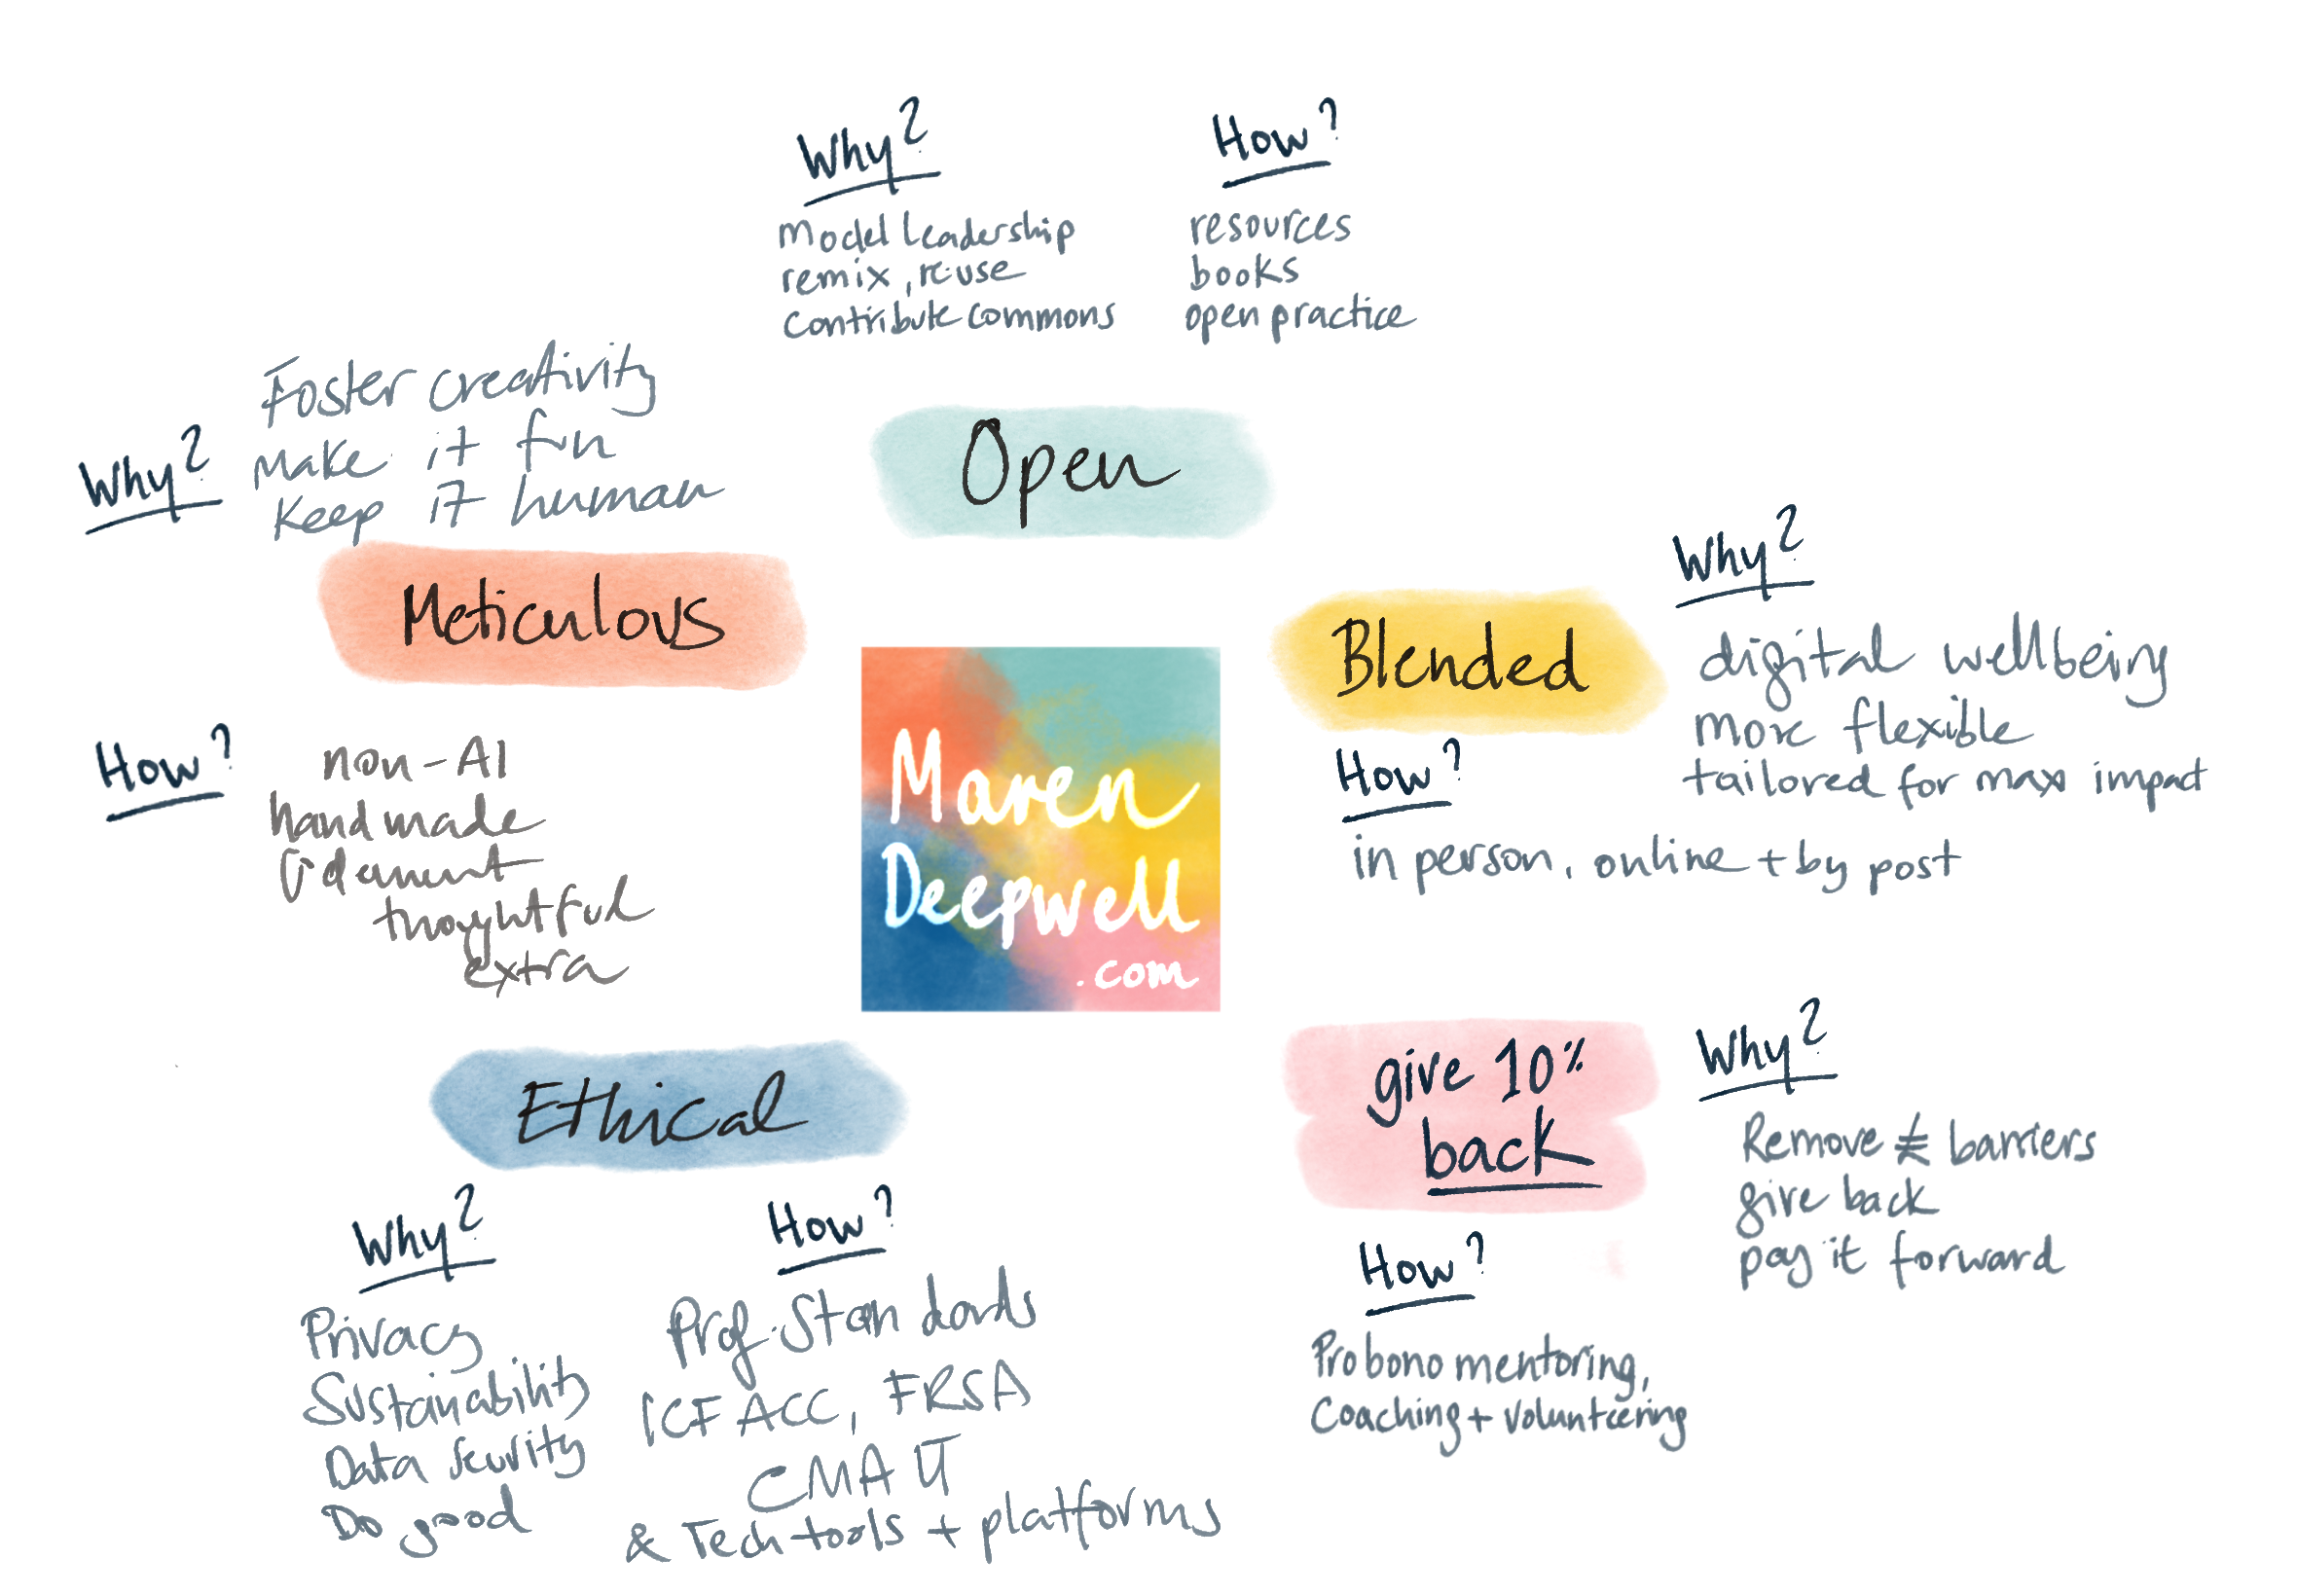 Why?
model leadership
remix, re-use
contribute commons
How?
resources
books
open practice
Open
Why?
Foster creativity
make it fun
keep it human
Meticulous
How?
non-AI
handmade
thoughtful
extra
Maren
Deepwell
.com
Blended
Why?
digital wellbeing
more flexible
tailored for max impact
How?
in person, online + by post
Ethical
Why?
Privacy
Sustainability
Data security
Do good
How?
Prof. Standards
ICF ACC, FRSA
CMALT
& Tech tools + platforms
give 10%
back
Why?
Remove barriers
give back
pay it forward
How?
Pro bono mentoring,
Coaching + volunteering